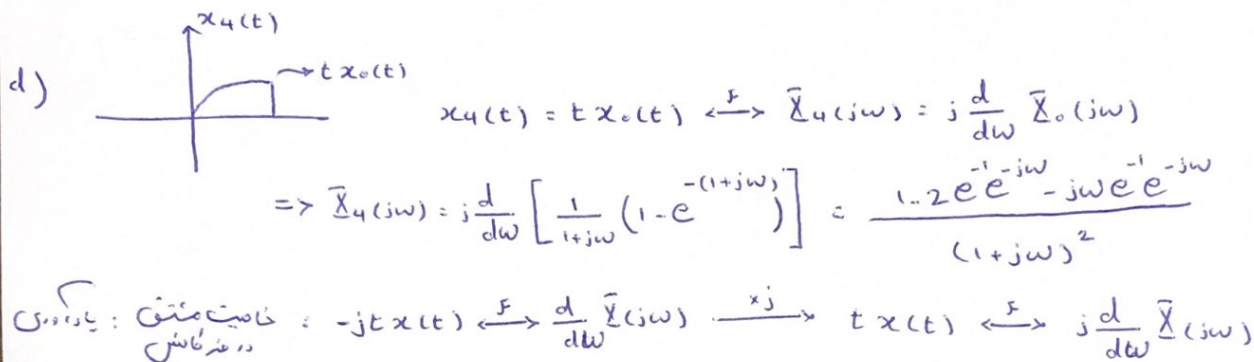 x₄(t)
d) → t x₀(t)
x₄(t) = t x₀(t) ↔ᶠ X̄₄(jω) = j d/dω X̄₀(jω)
=> X̄₄(jω) = j d/dω [ 1/(1+jω) (1 - e^{-(1+jω)}) ] = (1..2e^{-1}e^{-jω} - jωe^{-1}e^{-jω}) / (1+jω)²
یادآوری : خاصیت مشتق در فرکانس : -jt x(t) ↔ᶠ d/dω X̄(jω) —×j→ t x(t) ↔ᶠ j d/dω X̄(jω)